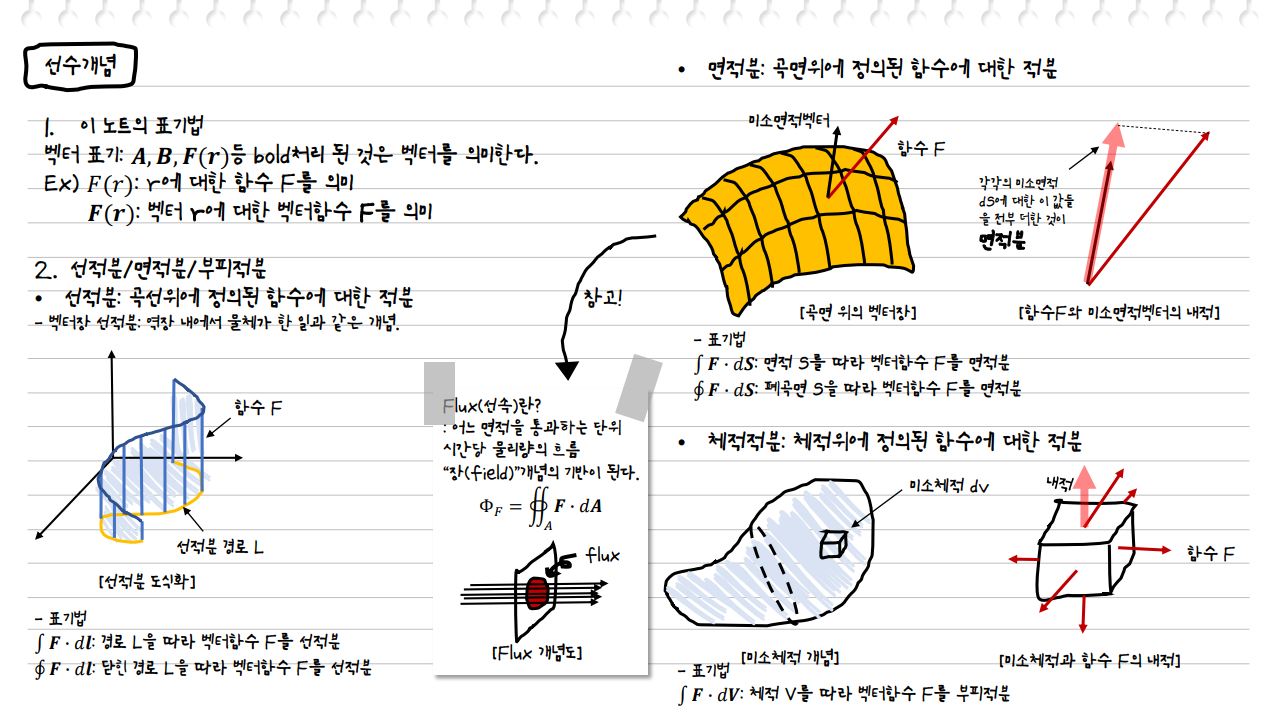 선수개념
1. 이 노트의 표기법
벡터 표기: A, B, F(r)등 bold처리 된 것은 벡터를 의미한다.
Ex) F(r): r에 대한 함수 F를 의미
F(r): 벡터 r에 대한 벡터함수 F를 의미
2. 선적분/면적분/부피적분
• 선적분: 곡선위에 정의된 함수에 대한 적분
- 벡터장 선적분: 역장 내에서 물체가 한 일과 같은 개념.
함수 F
선적분 경로 L
[선적분 도식화]
- 표기법
∫ F · dl: 경로 L을 따라 벡터함수 F를 선적분
∮ F · dl: 닫힌 경로 L을 따라 벡터함수 F를 선적분
참고!
Flux(선속)란?
: 어느 면적을 통과하는 단위
시간당 물리량의 흐름
"장(field)"개념의 기반이 된다.
Φ_F = ∯_A F · dA
flux
[Flux 개념도]
• 면적분: 곡면위에 정의된 함수에 대한 적분
미소면적벡터
함수 F
각각의 미소면적
dS에 대한 이 값들
을 전부 더한 것이
면적분
[곡면 위의 벡터장]
[함수F와 미소면적벡터의 내적]
- 표기법
∫ F · dS: 면적 S를 따라 벡터함수 F를 면적분
∮ F · dS: 폐곡면 S을 따라 벡터함수 F를 면적분
• 체적적분: 체적위에 정의된 함수에 대한 적분
미소체적 dv
내적
함수 F
[미소체적 개념]
[미소체적과 함수 F의 내적]
- 표기법
∫ F · dV: 체적 V를 따라 벡터함수 F를 부피적분